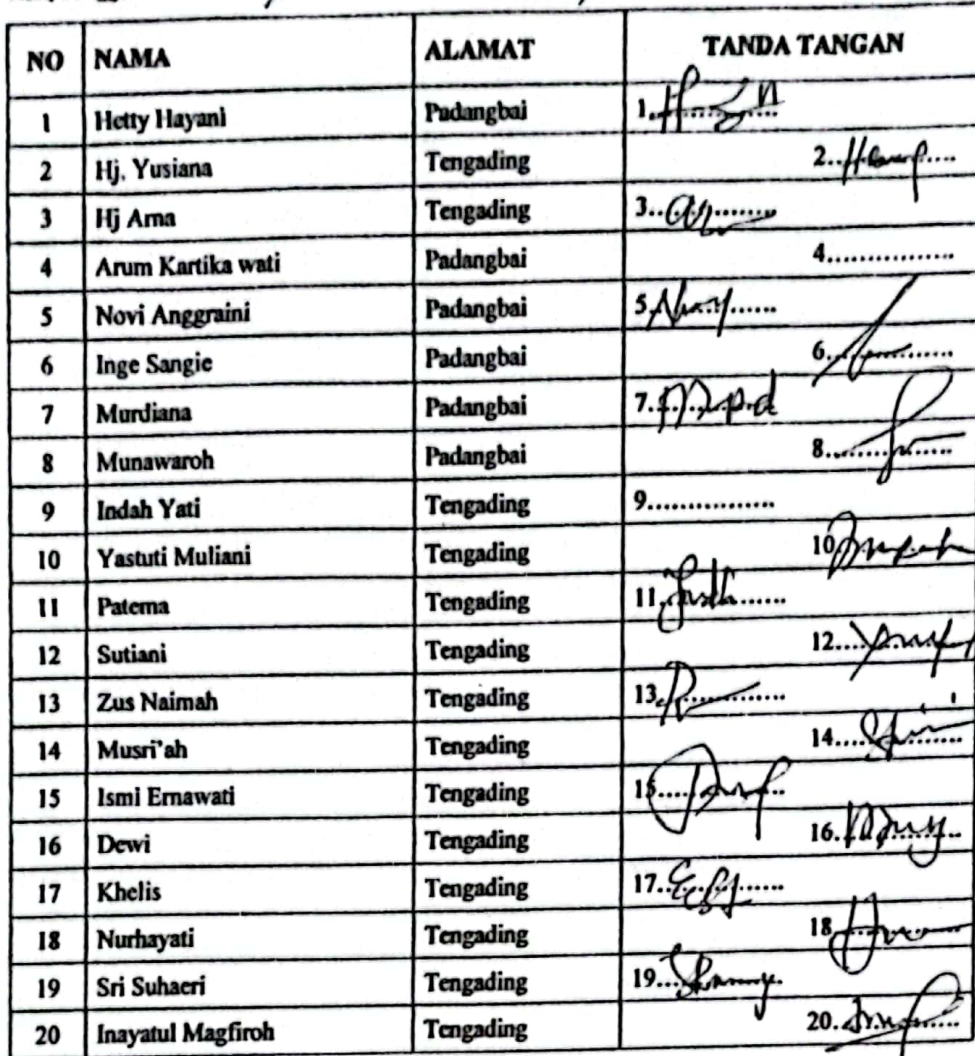 NO NAMA ALAMAT TANDA TANGAN
1 Hetty Hayani Padangbai 1.
2 Hj. Yusiana Tengading 2.
3 Hj Arna Tengading 3.
4 Arum Kartika wati Padangbai 4................
5 Novi Anggraini Padangbai 5
6 Inge Sangie Padangbai 6.
7 Murdiana Padangbai 7.
8 Munawaroh Padangbai 8.
9 Indah Yati Tengading 9................
10 Yastuti Muliani Tengading 10
11 Patema Tengading 11.
12 Sutiani Tengading 12.
13 Zus Naimah Tengading 13.
14 Musri'ah Tengading 14.
15 Ismi Ernawati Tengading 15.
16 Dewi Tengading 16.
17 Khelis Tengading 17.
18 Nurhayati Tengading 18
19 Sri Suhaeri Tengading 19.
20 Inayatul Magfiroh Tengading 20.